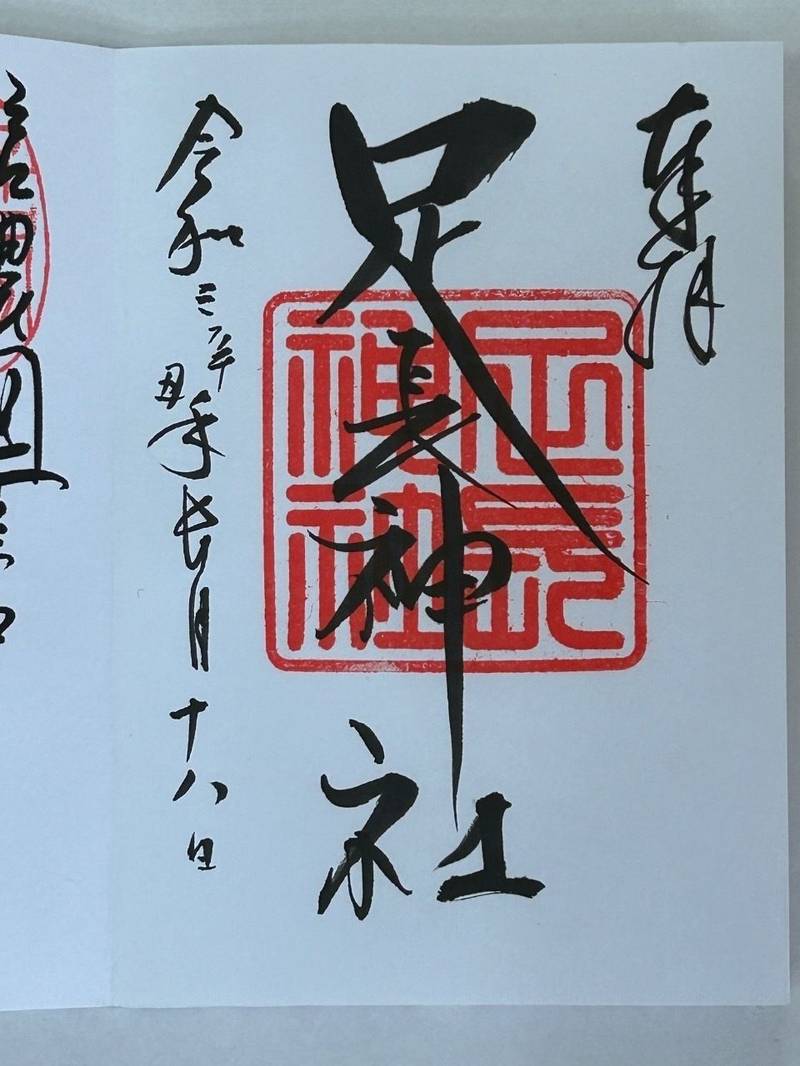 奉拝
足長神社
足長神社
令和三辛丑年長月十八日